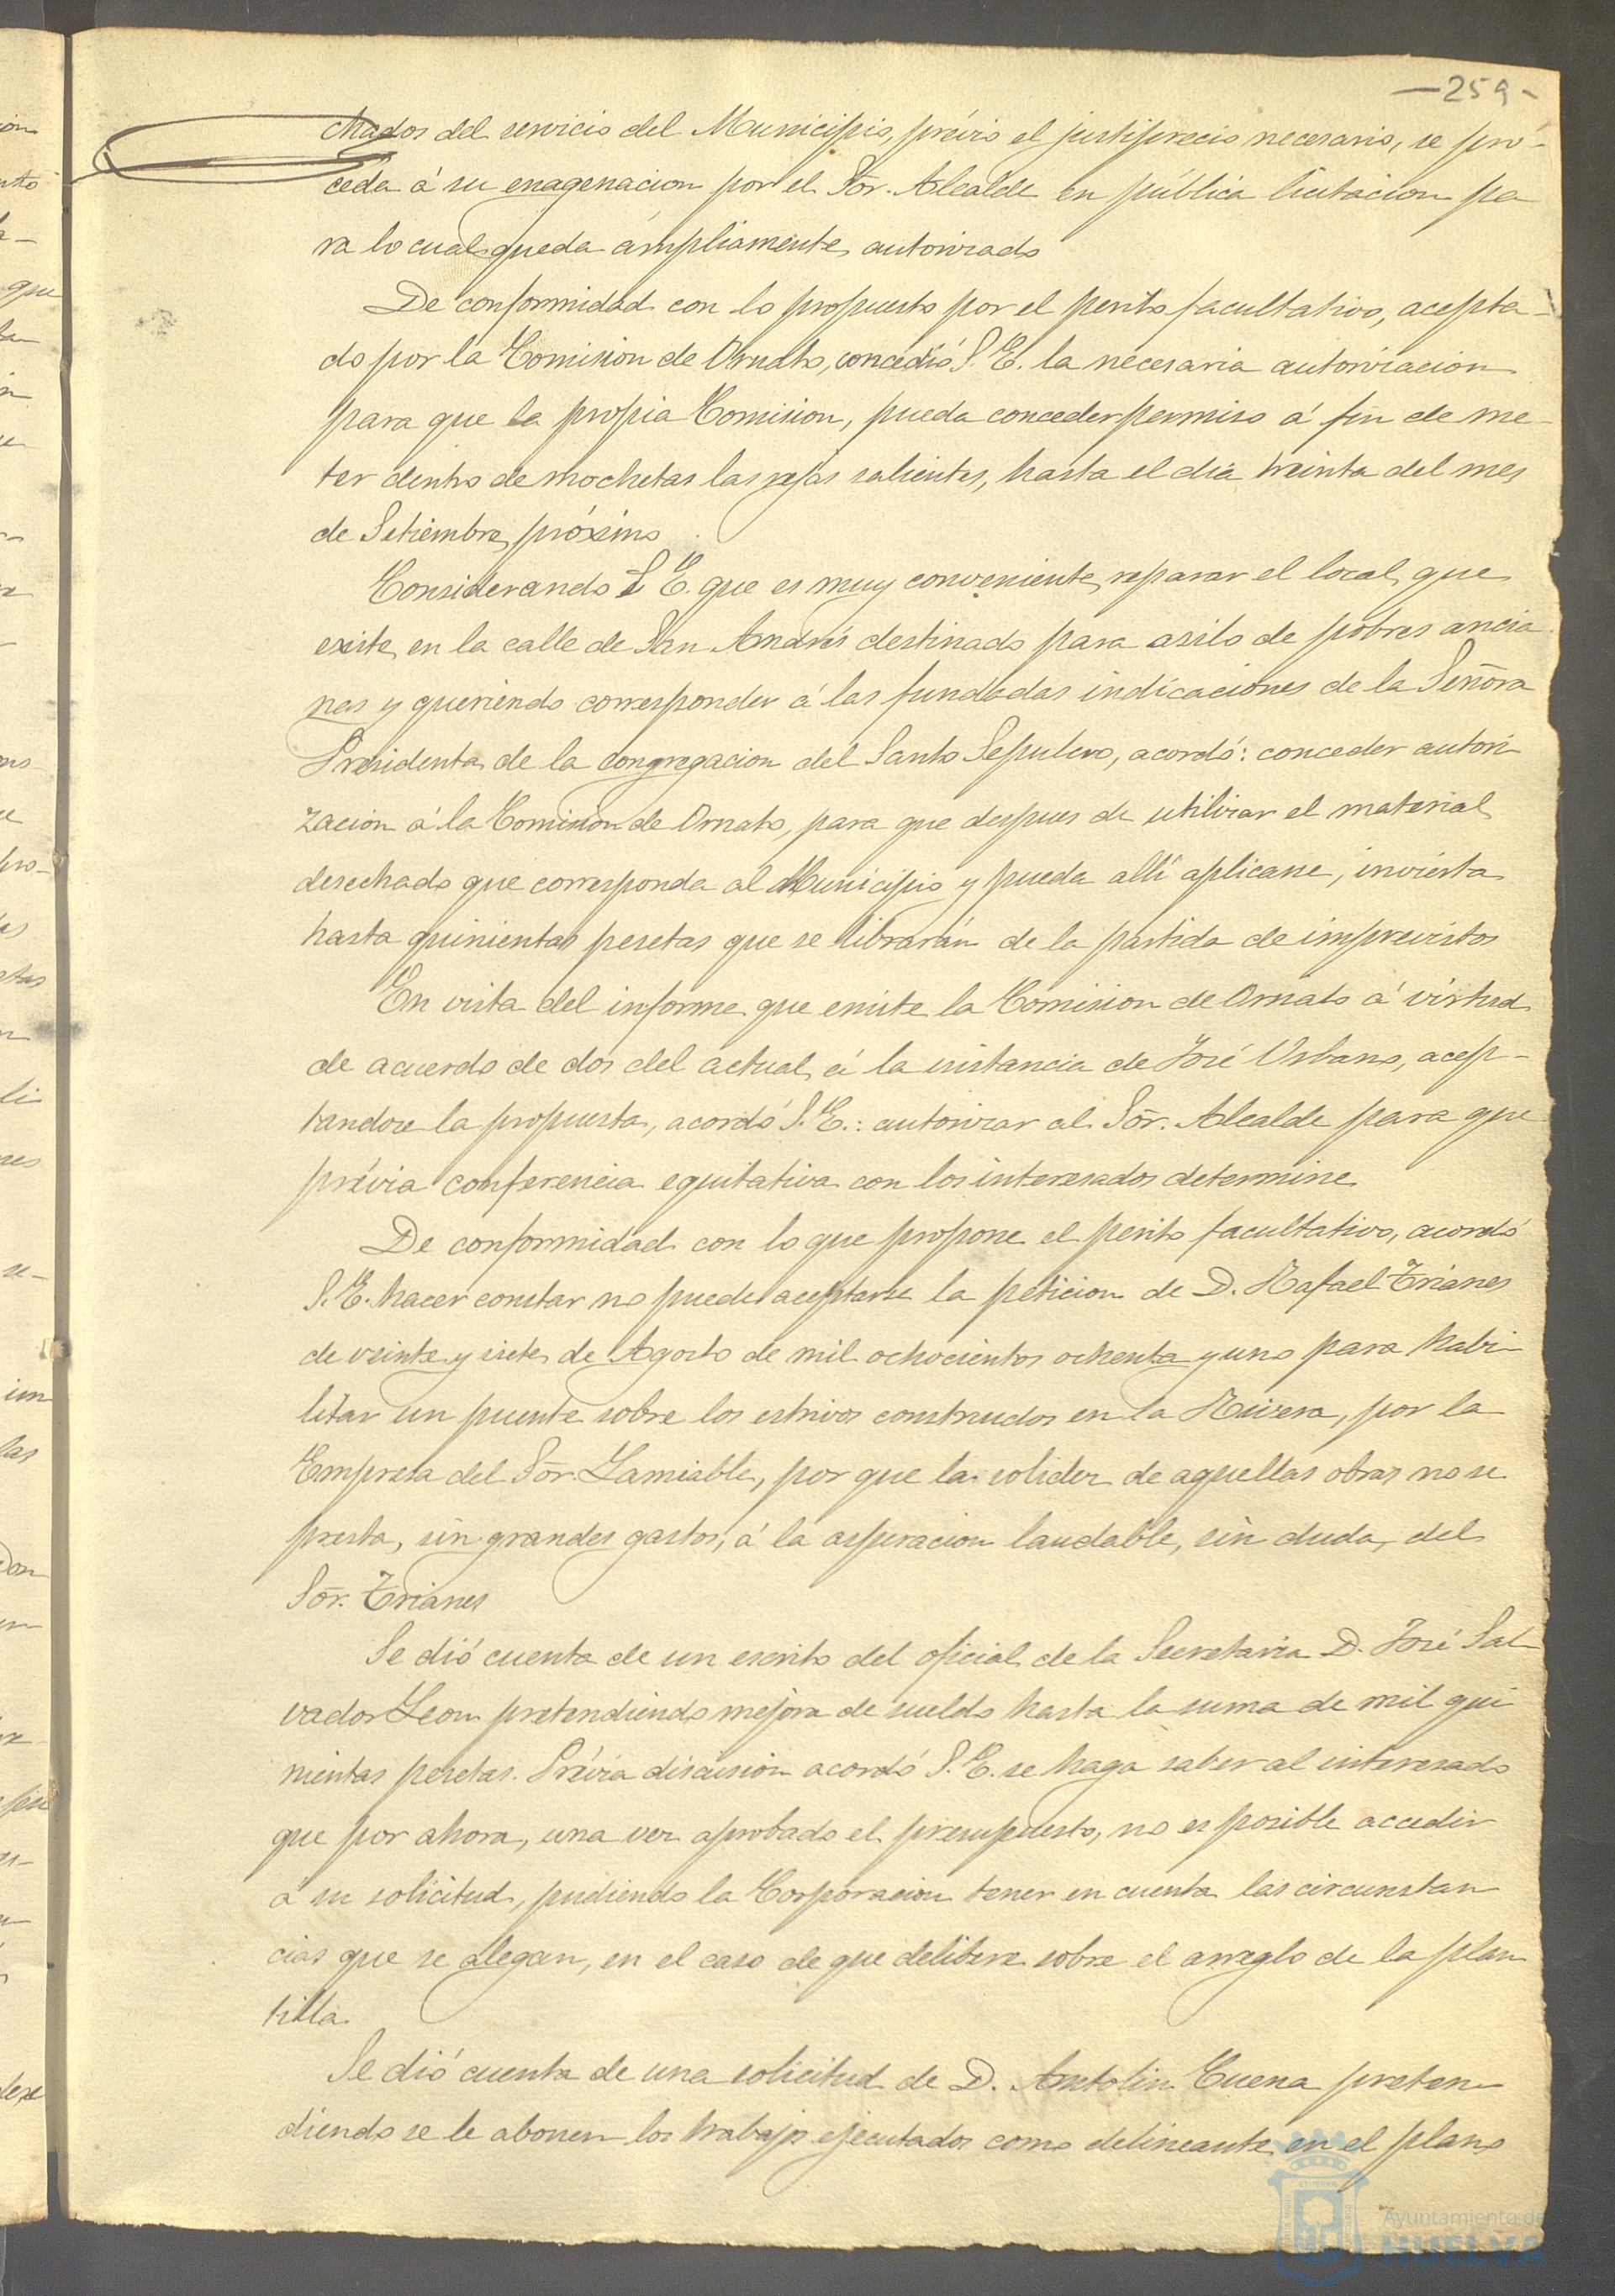 —259-
chados del servicio del Municipio, prévio el justiprecio necesario, se pro-
ceda á su enagenacion por el Sōr. Alcalde en pública licitacion pa
ra lo cual queda ámpliamente autorizado
De conformidad con lo propuesto por el perito facultativo, acepta-
do por la Comision de Ornato, concedió S. E. la necesaria autorizacion
para que la propia Comision, pueda conceder permiso á fin de me-
ter dentro de mochetas las rejas salientes, hasta el dia treinta del mes
de Setiembre próximo
Considerando S E. que es muy conveniente reparar el local que
existe en la calle de San Andrés destinado para asilo de pobres ancia
nas y queriendo corresponder á las fundadas indicaciones de la Señora
Presidenta de la congregacion del Santo Sepulcro, acordó: conceder autori
zacion á la Comision de Ornato, para que despues de utilizar el material
desechado que corresponda al Municipio y pueda allí aplicarse, invierta
hasta quinientas pesetas que se librarán de la partida de imprevistos
En vista del informe que emite la Comision de Ornato á virtud
de acuerdo de dos del actual á la instancia de José Urbano, acep-
tandose la propuesta, acordó S. E.: autorizar al Sōr. Alcalde para que
prévia conferencia equitativa con los interesados determine
De conformidad con lo que propone el perito facultativo, acordó
S. E. hacer constar no puede aceptarse la peticion de D. Rafael Trianes
de veinte y siete de Agosto de mil ochocientos ochenta y uno para habi-
litar un puente sobre los estrivos construidos en la Rivera, por la
Empresa del Sōr. Lamiable, por que la solidez de aquellas obras no se
presta, sin grandes gastos, á la aspiracion laudable, sin duda, del
Sōr. Trianes
Se dió cuenta de un escrito del oficial de la Secretaria D. José Sal-
vador Leon pretendiendo mejora de sueldo hasta la suma de mil qui
nientas pesetas. Prévia discusion acordó S. E. se haga saber al interesado
que por ahora, una vez aprobado el presupuesto, no es posible acceder
á su solicitud, pudiendo la Corporacion tener en cuenta las circunstan
cias que se alegan, en el caso de que delibere sobre el arreglo de la plan
tilla
Se dió cuenta de una solicitud de D. Antolin Cuena preten
diendo se le abonen los trabajos ejecutados como delineante en el plano
Ayuntamiento de
HUELVA